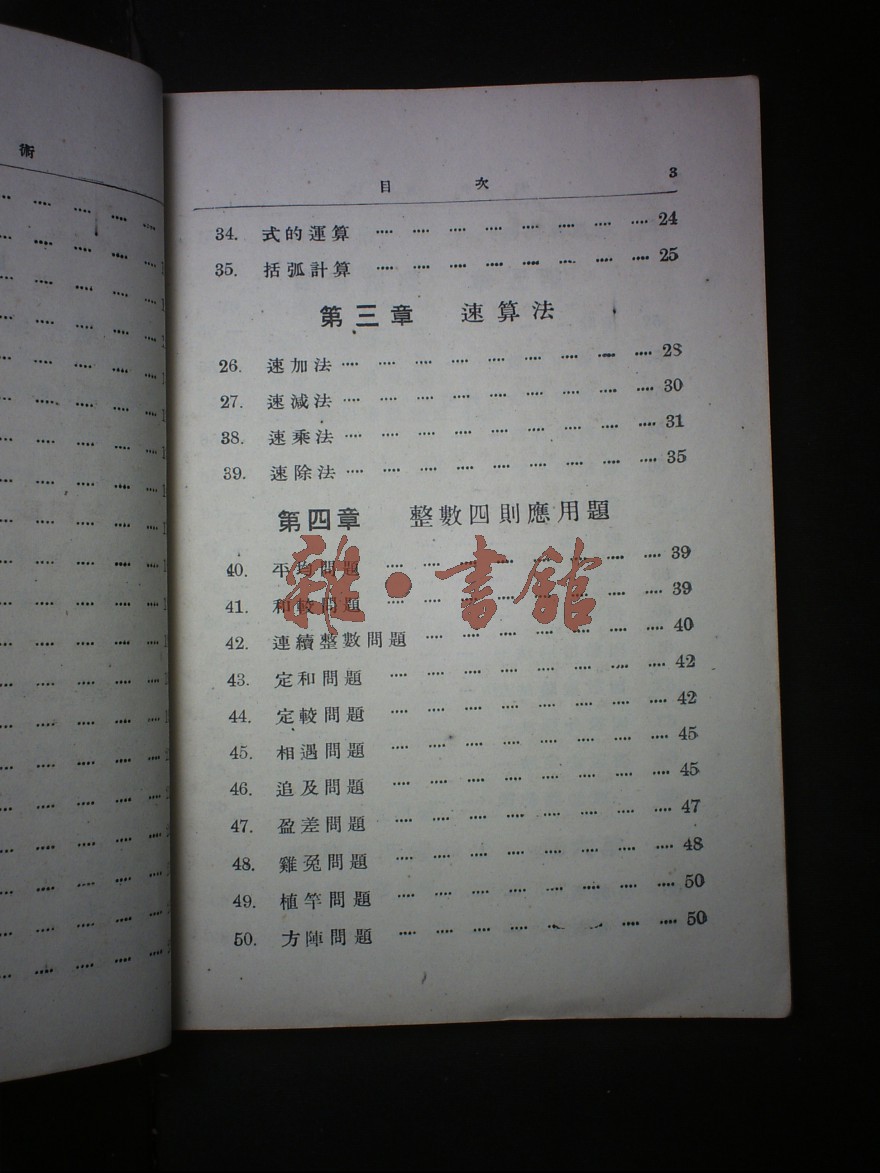 術
目 次 3
34. 式的運算 ···· ···· ···· ···· ···· ···· ···· ···· 24
35. 括弧計算 ···· ···· ···· ···· ···· ···· ···· ···· 25
第三章 速算法
26. 速加法 ···· ···· ···· ···· ···· ···· ···· ···· ···· 28
27. 速減法 ···· ···· ···· ···· ···· ···· ···· ···· ···· 30
38. 速乘法 ···· ···· ···· ···· ···· ···· ···· ···· ···· 31
39. 速除法 ···· ···· ···· ···· ···· ···· ···· ···· ···· 35
第四章 整數四則應用題
40. 平均問題 ···· ···· ···· ···· ···· ···· ···· ···· 39
41. 和較問題 ···· ···· ···· ···· ···· ···· ···· ···· 39
42. 連續整數問題 ···· ···· ···· ···· ···· ···· ···· 40
43. 定和問題 ···· ···· ···· ···· ···· ···· ···· ···· 42
44. 定較問題 ···· ···· ···· ···· ···· ···· ···· ···· 42
45. 相遇問題 ···· ···· ···· ···· ···· ···· ···· ···· 45
46. 追及問題 ···· ···· ···· ···· ···· ···· ···· ···· 45
47. 盈差問題 ···· ···· ···· ···· ···· ···· ···· ···· 47
48. 雞兔問題 ···· ···· ···· ···· ···· ···· ···· ···· 48
49. 植竿問題 ···· ···· ···· ···· ···· ···· ···· ···· 50
50. 方陣問題 ···· ···· ···· ···· ···· ···· ···· ···· 50
雜·書館